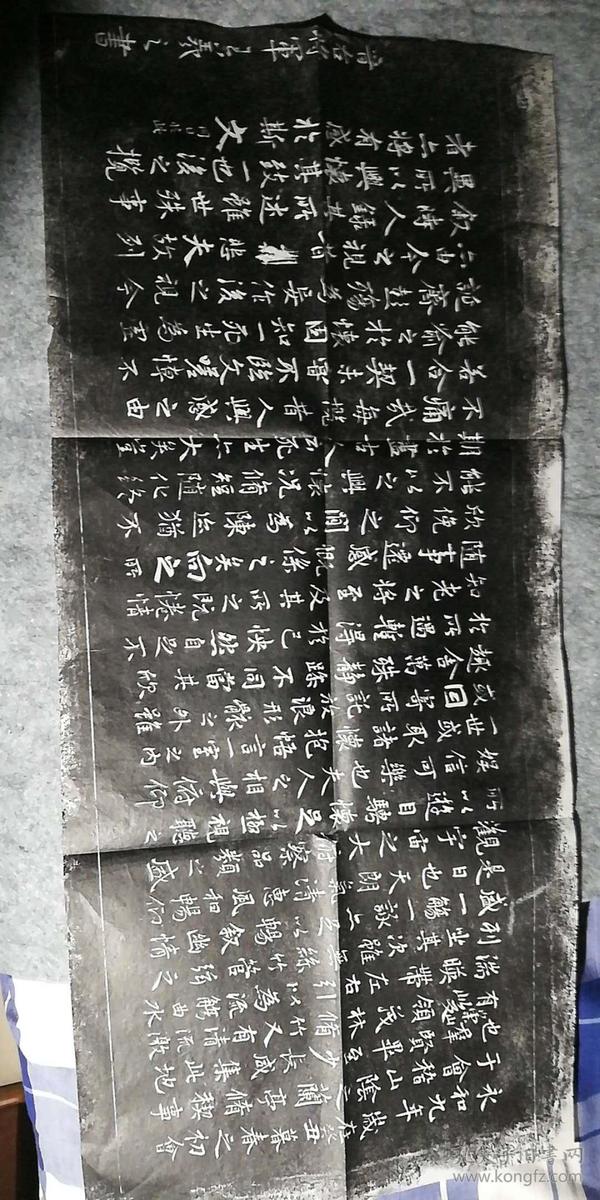 永和九年歲在癸丑暮春之初會
于會稽山陰之蘭亭脩禊事
也群賢畢至少長咸集此地
有峻領茂林脩竹又有清流激
湍暎帶左右引以為流觴曲水
列坐其次雖無絲竹管弦之
盛一觴一詠亦足以暢敘幽情
是日也天朗氣清惠風和暢仰
觀宇宙之大俯察品類之盛
所以遊目騁懷足以極視聽之
娛信可樂也夫人之相與俯仰
一世或取諸懷抱悟言一室之內
或因寄所託放浪形骸之外雖
趣舍萬殊靜躁不同當其欣
於所遇暫得於己怏然自足不
知老之將至及其所之既惓情
隨事遷感慨係之矣向之所
欣俛仰之閒以為陳迹猶不
能不以之興懷況脩短隨化終
期於盡古人云死生亦大矣豈
不痛哉每攬昔人興感之由
若合一契未嘗不臨文嗟悼不
能喻之於懷固知一死生為虛
誕齊彭殤為妄作後之視今
亦由今之視昔悲夫故列
敘時人錄其所述雖世殊事
異所以興懷其致一也後之攬
者亦將有感於斯文
晉右將軍王羲之書
www.kongfz.com